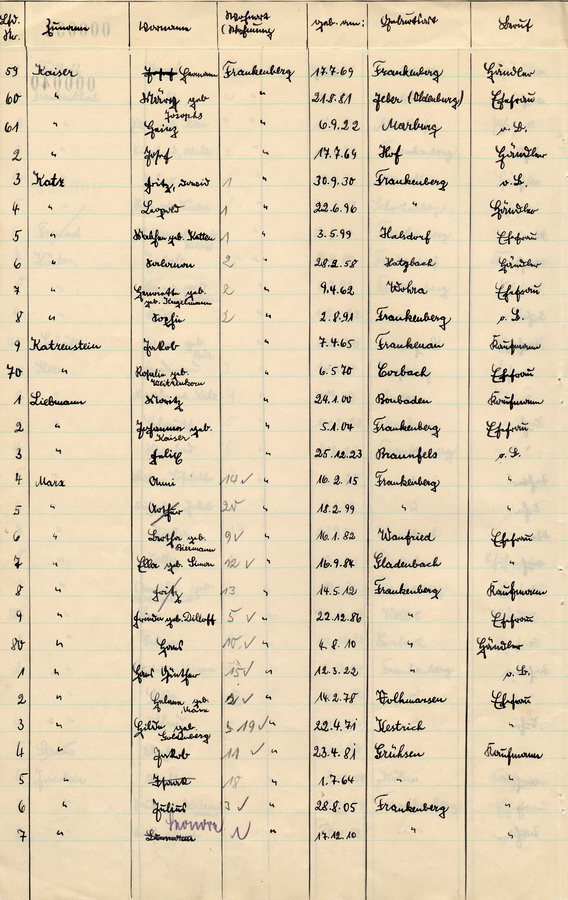 Lfd. Nr. Zuname Vorname Wohnort (Wohnung) geb. am: Geburtsort Beruf
59 Kaiser Hermann Frankenberg 17.7.69 Frankenberg Händler
60 " geb. Josephs " 21.8.81 Jever (Oldenburg) Ehefrau
61 " Heinz " 6.9.22 Marburg o.B.
2 " Josef " 17.7.64 Hof Händler
3 Katz Fritz, David 1 " 30.9.30 Frankenberg o.B.
4 " Leopold 1 " 22.6.96 " Händler
5 " geb. Katten 1 " 3.5.99 Halsdorf Ehefrau
6 " Salomon 2 " 28.2.58 Hatzbach Händler
7 " Henriette geb. 2 " 9.4.62 Wohra Ehefrau
geb. Kugelmann
8 " Sophie 2 " 2.8.91 Frankenberg o.B.
9 Katzenstein Jakob " 7.4.65 Frankenau Kaufmann
70 " Rosalie geb. " 6.5.70 Corbach Ehefrau
1 Liebmann Moritz " 24.1.00 Bonbaden Kaufmann
2 " Johanna geb. Kaiser " 5.1.04 Frankenberg Ehefrau
3 " Felix " 25.12.23 Braunfels o.B.
4 Marx Anni 14 ✓ " 16.2.15 Frankenberg "
5 " Arthur 20 " 18.2.99 " "
6 " Bertha geb. Biermann 9 ✓ " 16.1.82 Wanfried Ehefrau
7 " Ella geb. Simon 12 ✓ " 16.9.84 Gladenbach "
8 " Fritz 13 " 14.5.12 Frankenberg Kaufmann
9 " Frieda geb. Dilloff 5 ✓ " 22.12.86 " Ehefrau
80 " Hans 10 ✓ " 4.8.10 " Händler
1 " Hans Günther 15 ✓ " 12.3.22 " o.B.
2 " Helene geb. Marx ✓ " 14.2.78 Volkmarsen Ehefrau
3 " Hilda geb. Goldenberg 19 ✓ " 22.4.71 Kestrich "
4 " Jakob 11 ✓ " 23.4.81 Grüsen Kaufmann
5 " Isaak 18 " 1.7.64 " "
6 " Julius ✓ " 28.8.05 Frankenberg "
7 " Leonore " 17.12.10 " "